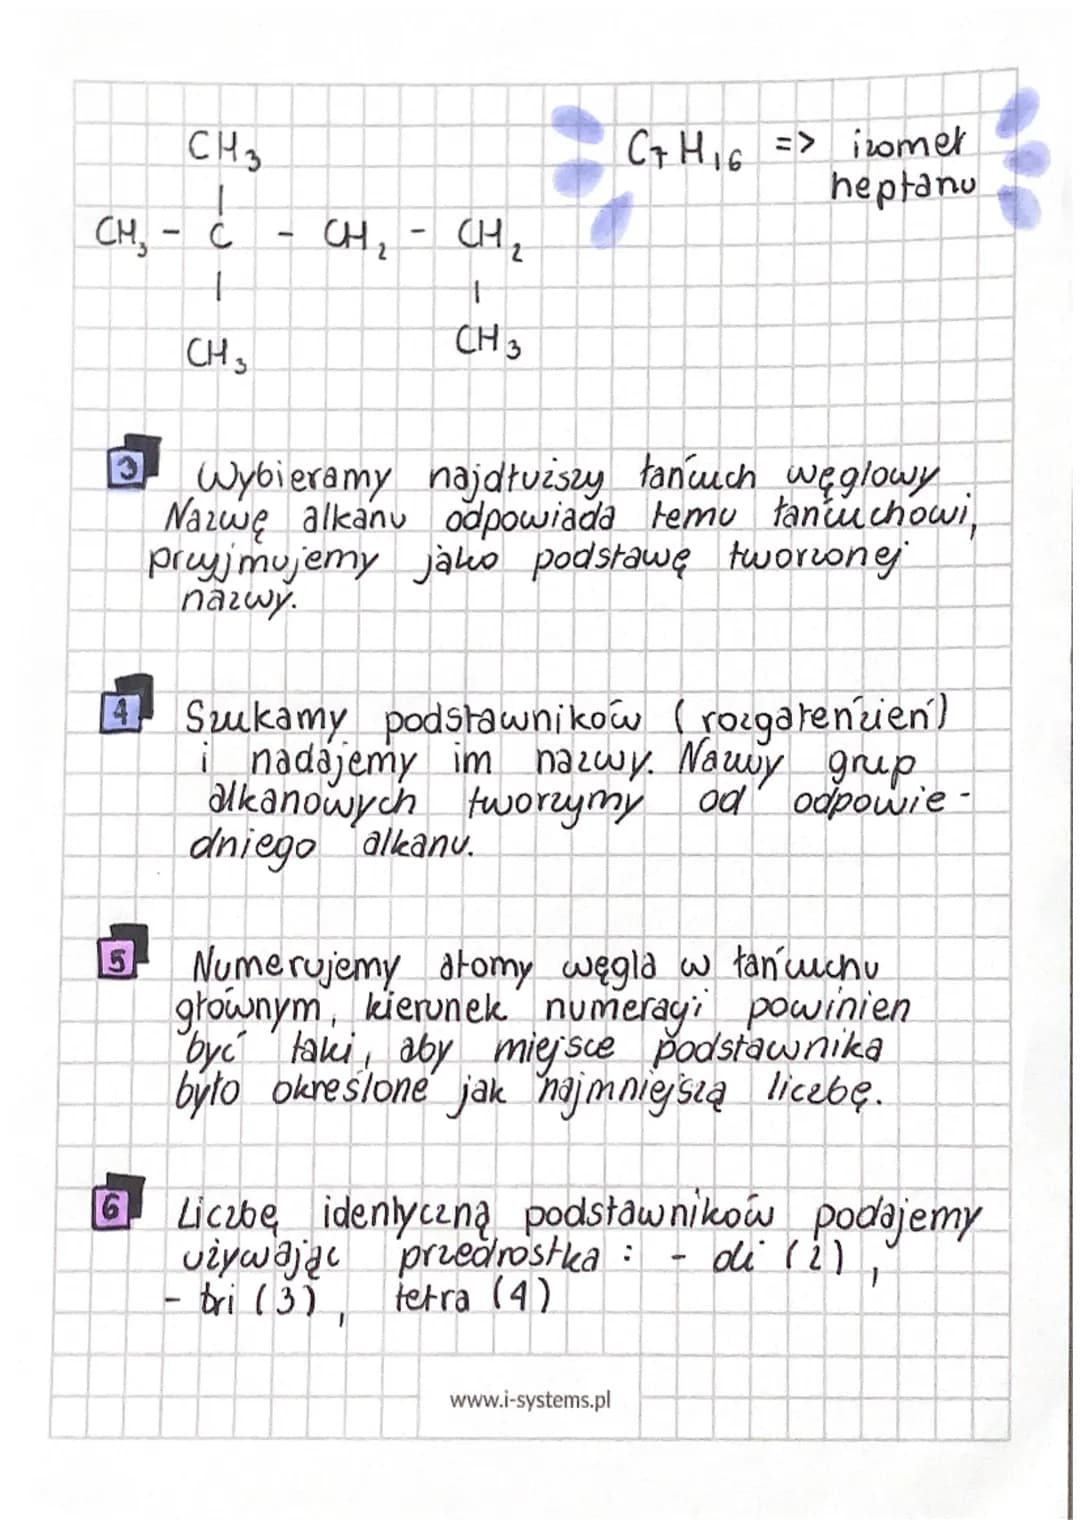 CH₃
C₇H₁₆ => izomer
heptanu
|
CH₃ - C - CH₂ - CH₂
| |
CH₃ CH₃
3 Wybieramy najdłuższy łańcuch węglowy
Nazwę alkanu odpowiada temu łańcuchowi,
przyjmujemy jako podstawę tworzonej
nazwy.
4 Szukamy podstawników (rozgałęzień)
i nadajemy im nazwy. Nazwy grup
alkanowych tworzymy od odpowie-
dniego alkanu.
5 Numerujemy atomy węgla w łańcuchu
głównym, kierunek numeracji powinien
być taki, aby miejsce podstawnika
było określone jak najmniejszą liczbę.
6 Liczbę identyczną podstawników podajemy
używając przedrostka : - di (2),
- tri (3), tetra (4)
www.i-systems.pl